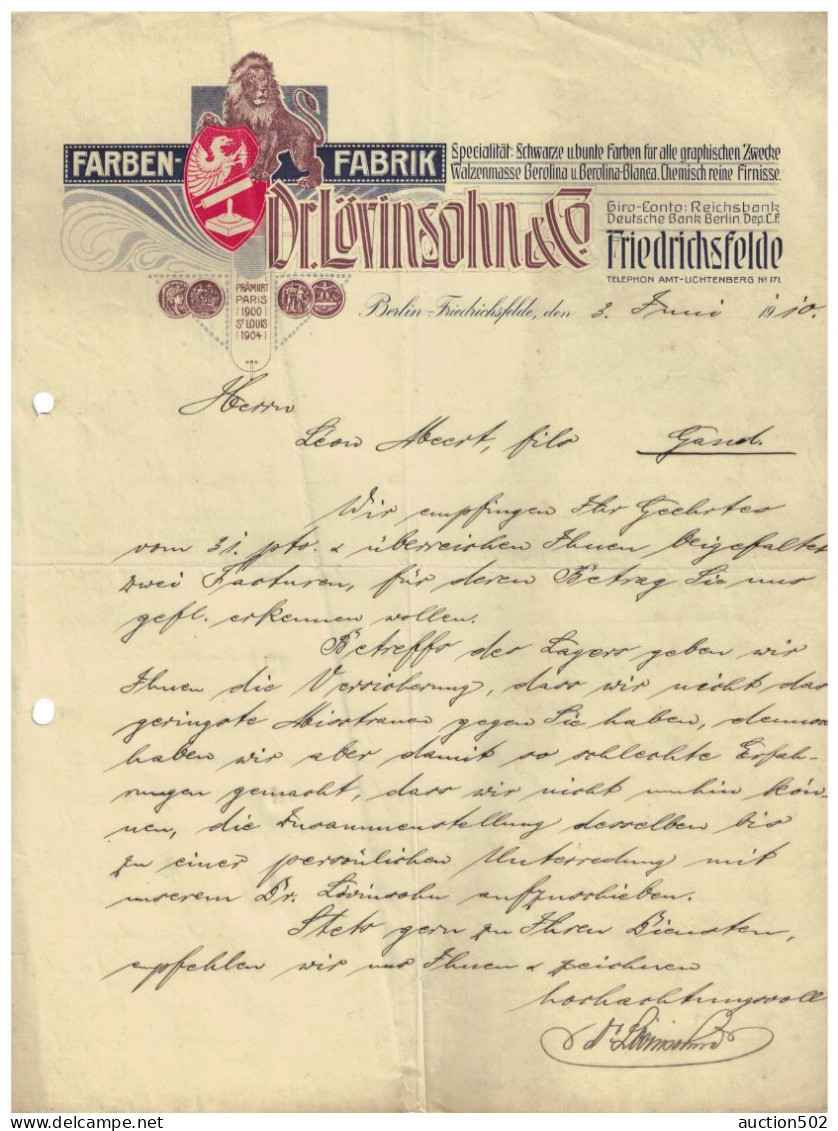 FARBEN-FABRIK
Specialität: Schwarze u. bunte Farben für alle graphischen Zwecke
Walzenmasse Berolina u. Berolina-Blanca. Chemisch reine Firnisse.
Dr. Lövinsohn & Co.
Giro-Conto: Reichsbank
Deutsche Bank Berlin, Dep. C.F.
Friedrichsfelde
TELEPHON AMT-LICHTENBERG No 171.
PRÄMIIRT
PARIS
1900
St LOUIS
1904
Berlin-Friedrichsfelde, den 3. Juni 1910.
Herrn
Léon Meert, fils Gand.
Wir empfingen Ihr Geehrtes
vom 31. pto. & überreichen Ihnen beigefaltet
zwei Facturen, für deren Betrag Sie uns
gefl. erkennen wollen.
Betreffs des Lagers geben wir
Ihnen die Versicherung, dass wir nicht das
geringste Misstrauen gegen Sie haben, dennoch
haben wir aber damit so schlechte Erfah-
rungen gemacht, dass wir nicht umhin kön-
nen, die Zusammenstellung desselben bis
zu einer persönlichen Unterredung mit
unserem Dr. Lövinsohn aufzuschieben.
Stets gern zu Ihren Diensten,
empfehlen wir uns Ihnen & zeichnen
hochachtungsvoll
Dr. Lövinsohn
auction502